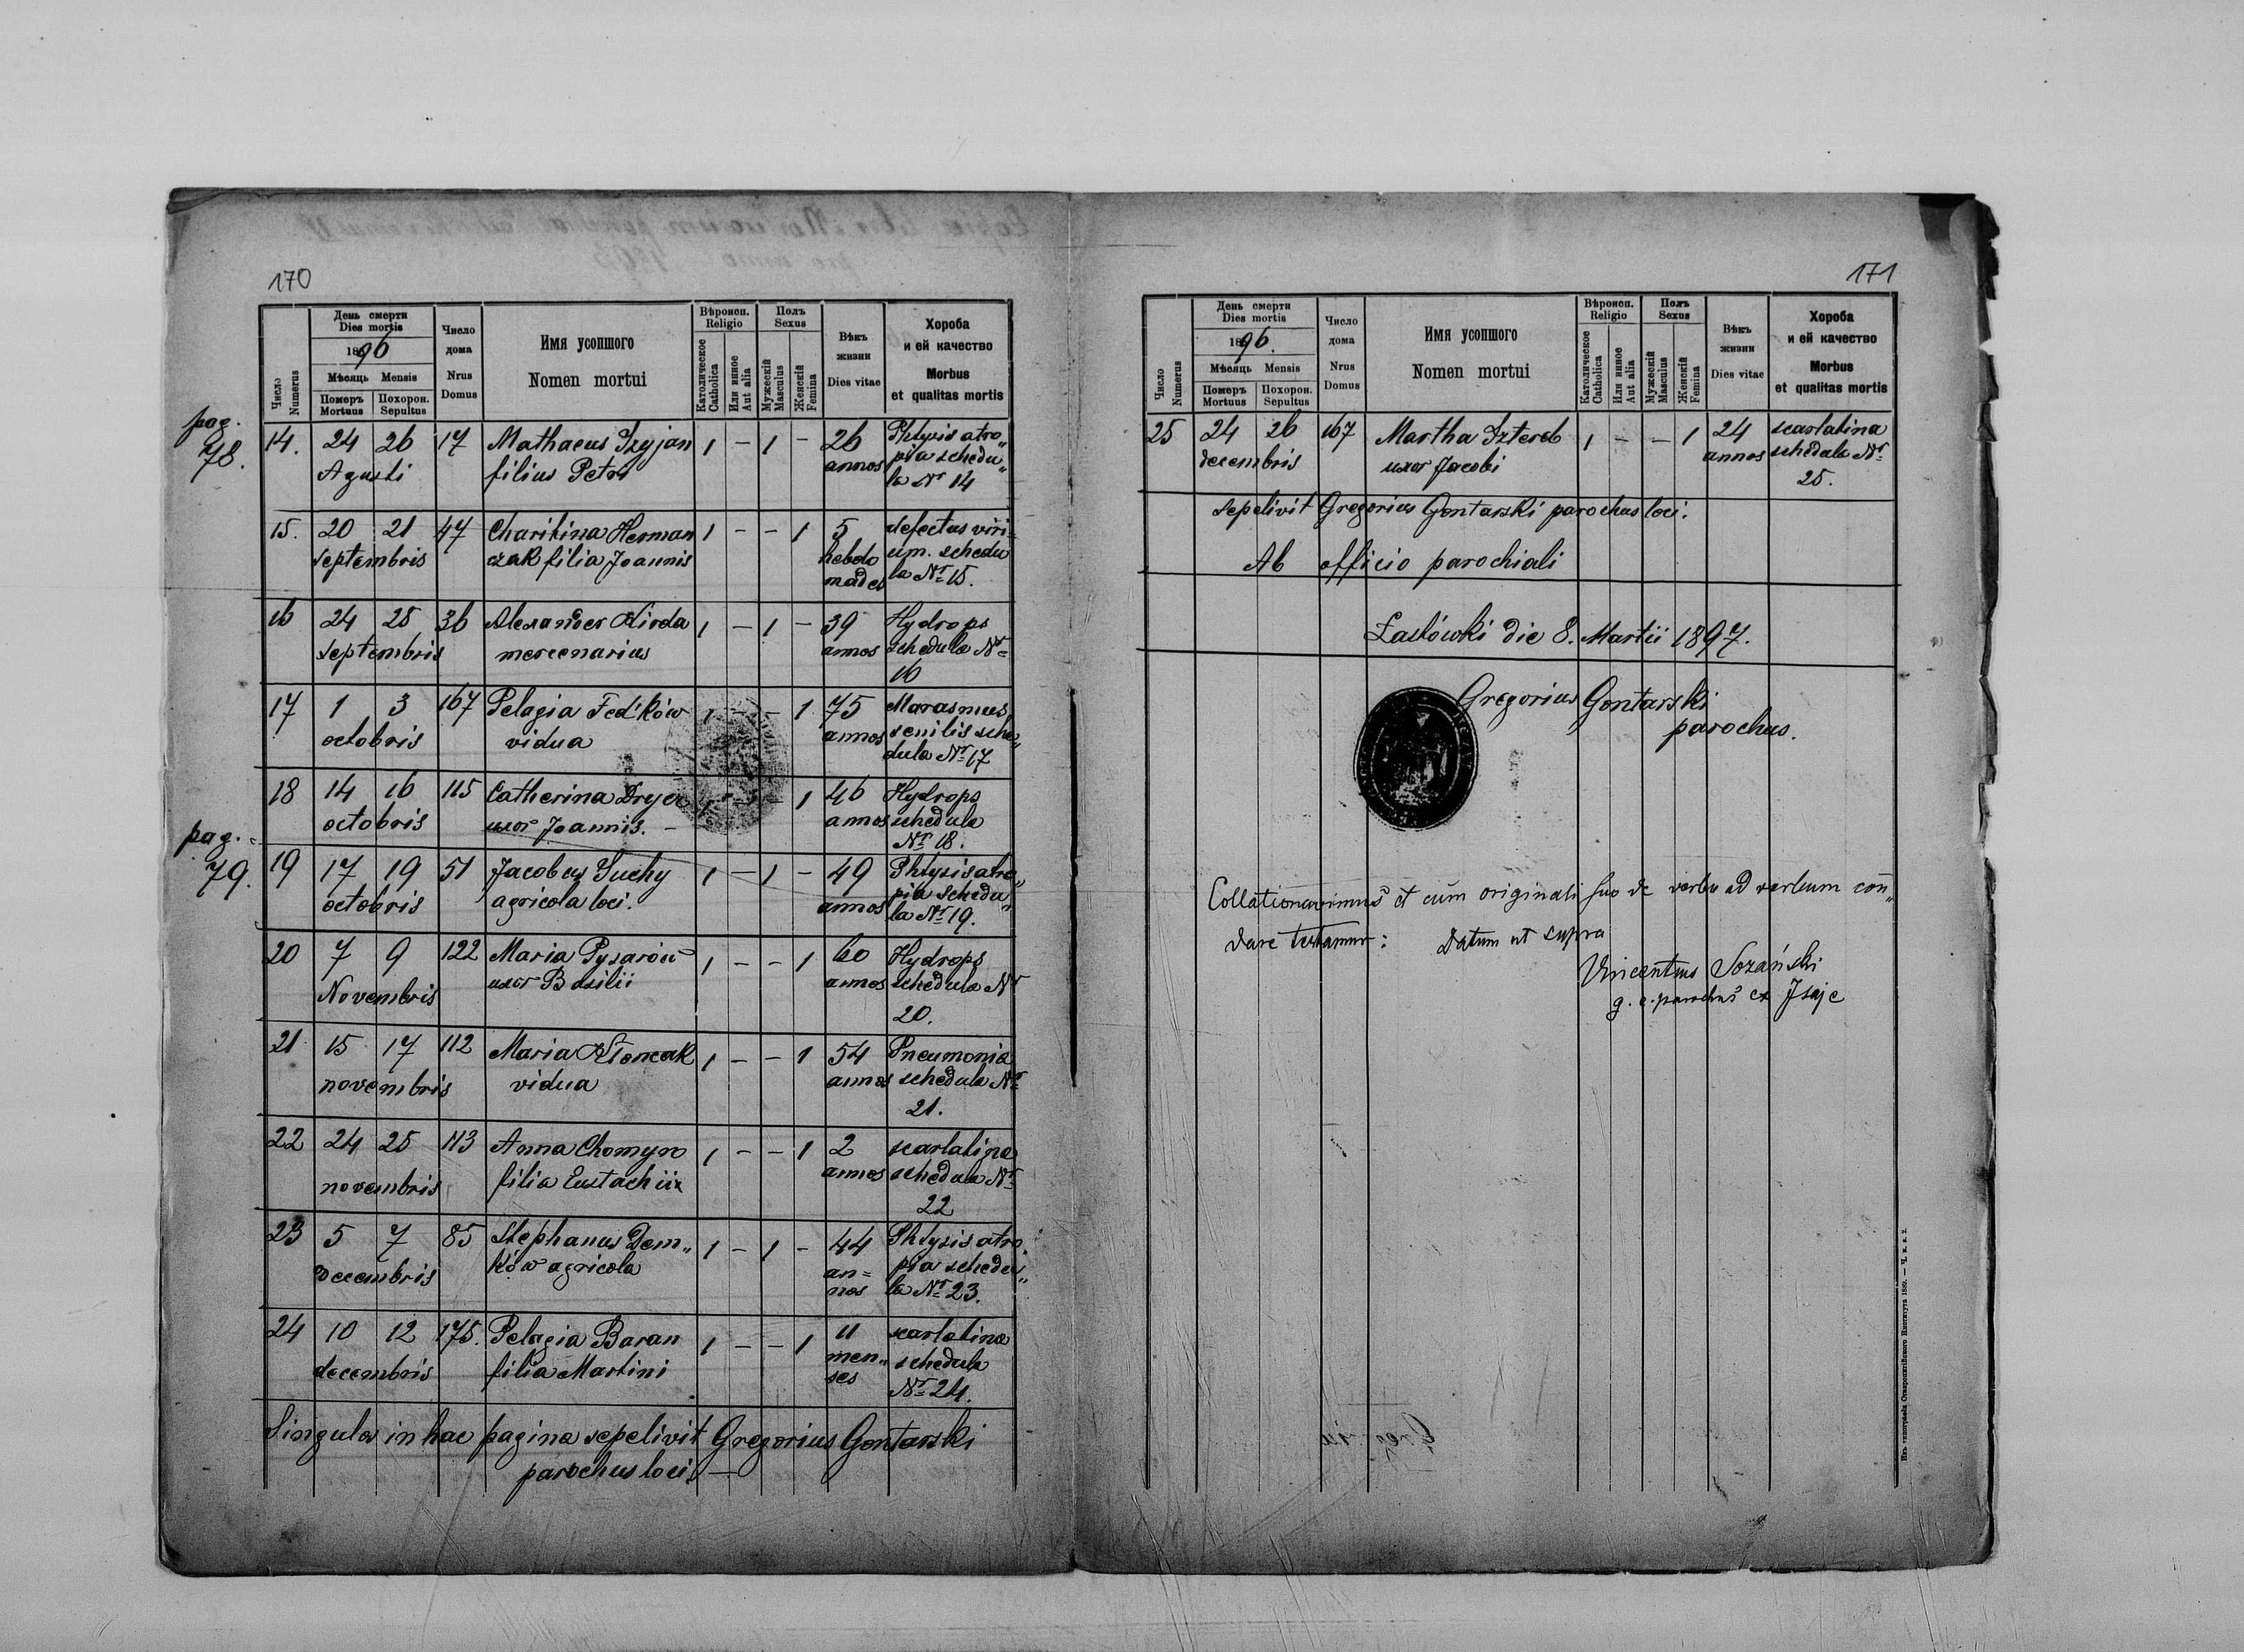 170
Число Numerus
День смерти
Dies mortis
1896
Мѣсяць Mensis
Померъ Mortuus
Похорон. Sepultus
Число дома
Nrus Domus
Имя усопшого
Nomen mortui
Вѣроисп.
Religio
Католическое Catholica
Или инное Aut alia
Полъ
Sexus
Мужескій Masculus
Женскій Femina
Вѣкъ жизни
Dies vitae
Хороба
и ей качество
Morbus
et qualitas mortis
pag. 78.
14. 24 26 17 Mathaeus Dzyjan 1 – 1 – 26 Phtysis atro„
Agusti filius Petri annos pia schedu„
la Nr 14
15. 20 21 47 Charitina Herman 1 – – 1 5 defectus viri-
septembris czak filia Joannis hebdo um. schedu
mades la Nr 15.
16 24 25 36 Alexander Kirda 1 – 1 – 39 Hydrops
septembris mercenarius annos schedula Nr
16
17 1 3 167 Pelagia Fed'ków 1 – – 1 75 Marasmus
octobris vidua annos senilis sche„
dula Nr 17
18 14 16 115 Catherina Dryer 1 – – 1 46 Hydrops
octobris uxor Joannis. – annos schedula
Nr 18.
pag. 79.
19 17 19 51 Jacobus Suchy 1 – 1 – 49 Phtysis atro„
octobris agricola loci. annos pia schedu„
la Nr 19.
20 7 9 122 Maria Pysarów 1 – – 1 60 Hydrops
Novembris uxor Basilii annos schedula Nr
20.
21 15 17 112 Maria 1 – – 1 54 Pneumonia
novembris vidua annos schedula Nr
21.
22 24 25 113 Anna Chomyn 1 – – 1 2 scarlatina
novembris filia Eustachii annos schedula Nr
22
23 5 7 85 Stephanus Dem„ 1 – 1 – 44 Phtysis atro
Decembris ków agricola an= pia schedu„
nos la Nr 23.
24 10 12 175. Pelagia Baran 1 – – 1 11 scarlatina
decembris filia Martini men„ schedula
ses Nr 24.
Singulos in hac pagina sepelivit Gregorius Gontarski
parochus loci. –
171
Число Numerus
День смерти
Dies mortis
1896.
Мѣсяць Mensis
Померъ Mortuus
Похорон. Sepultus
Число дома
Nrus Domus
Имя усопшого
Nomen mortui
Вѣроисп.
Religio
Католическое Catholica
Или инное Aut alia
Полъ
Sexus
Мужескій Masculus
Женскій Femina
Вѣкъ жизни
Dies vitae
Хороба
и ей качество
Morbus
et qualitas mortis
25 24 26 167 Martha Sztereb 1 – – 1 24 scarlatina
decembris uxor Jacobi annos schedula Nr
25.
sepelivit Gregorius Gontarski parochus loci.
Ab officio parochiali
Łastówki die 8. Martii 1897.
Gregorius Gontarski
parochus.
Collationavimus et cum originali suo de verbo ad verbum con„
dare testamur: Datum ut supra
Vincentius Sozański
g. c. parochus ex Isaje
Изъ типографіи Ставропигійского Института 1889. —